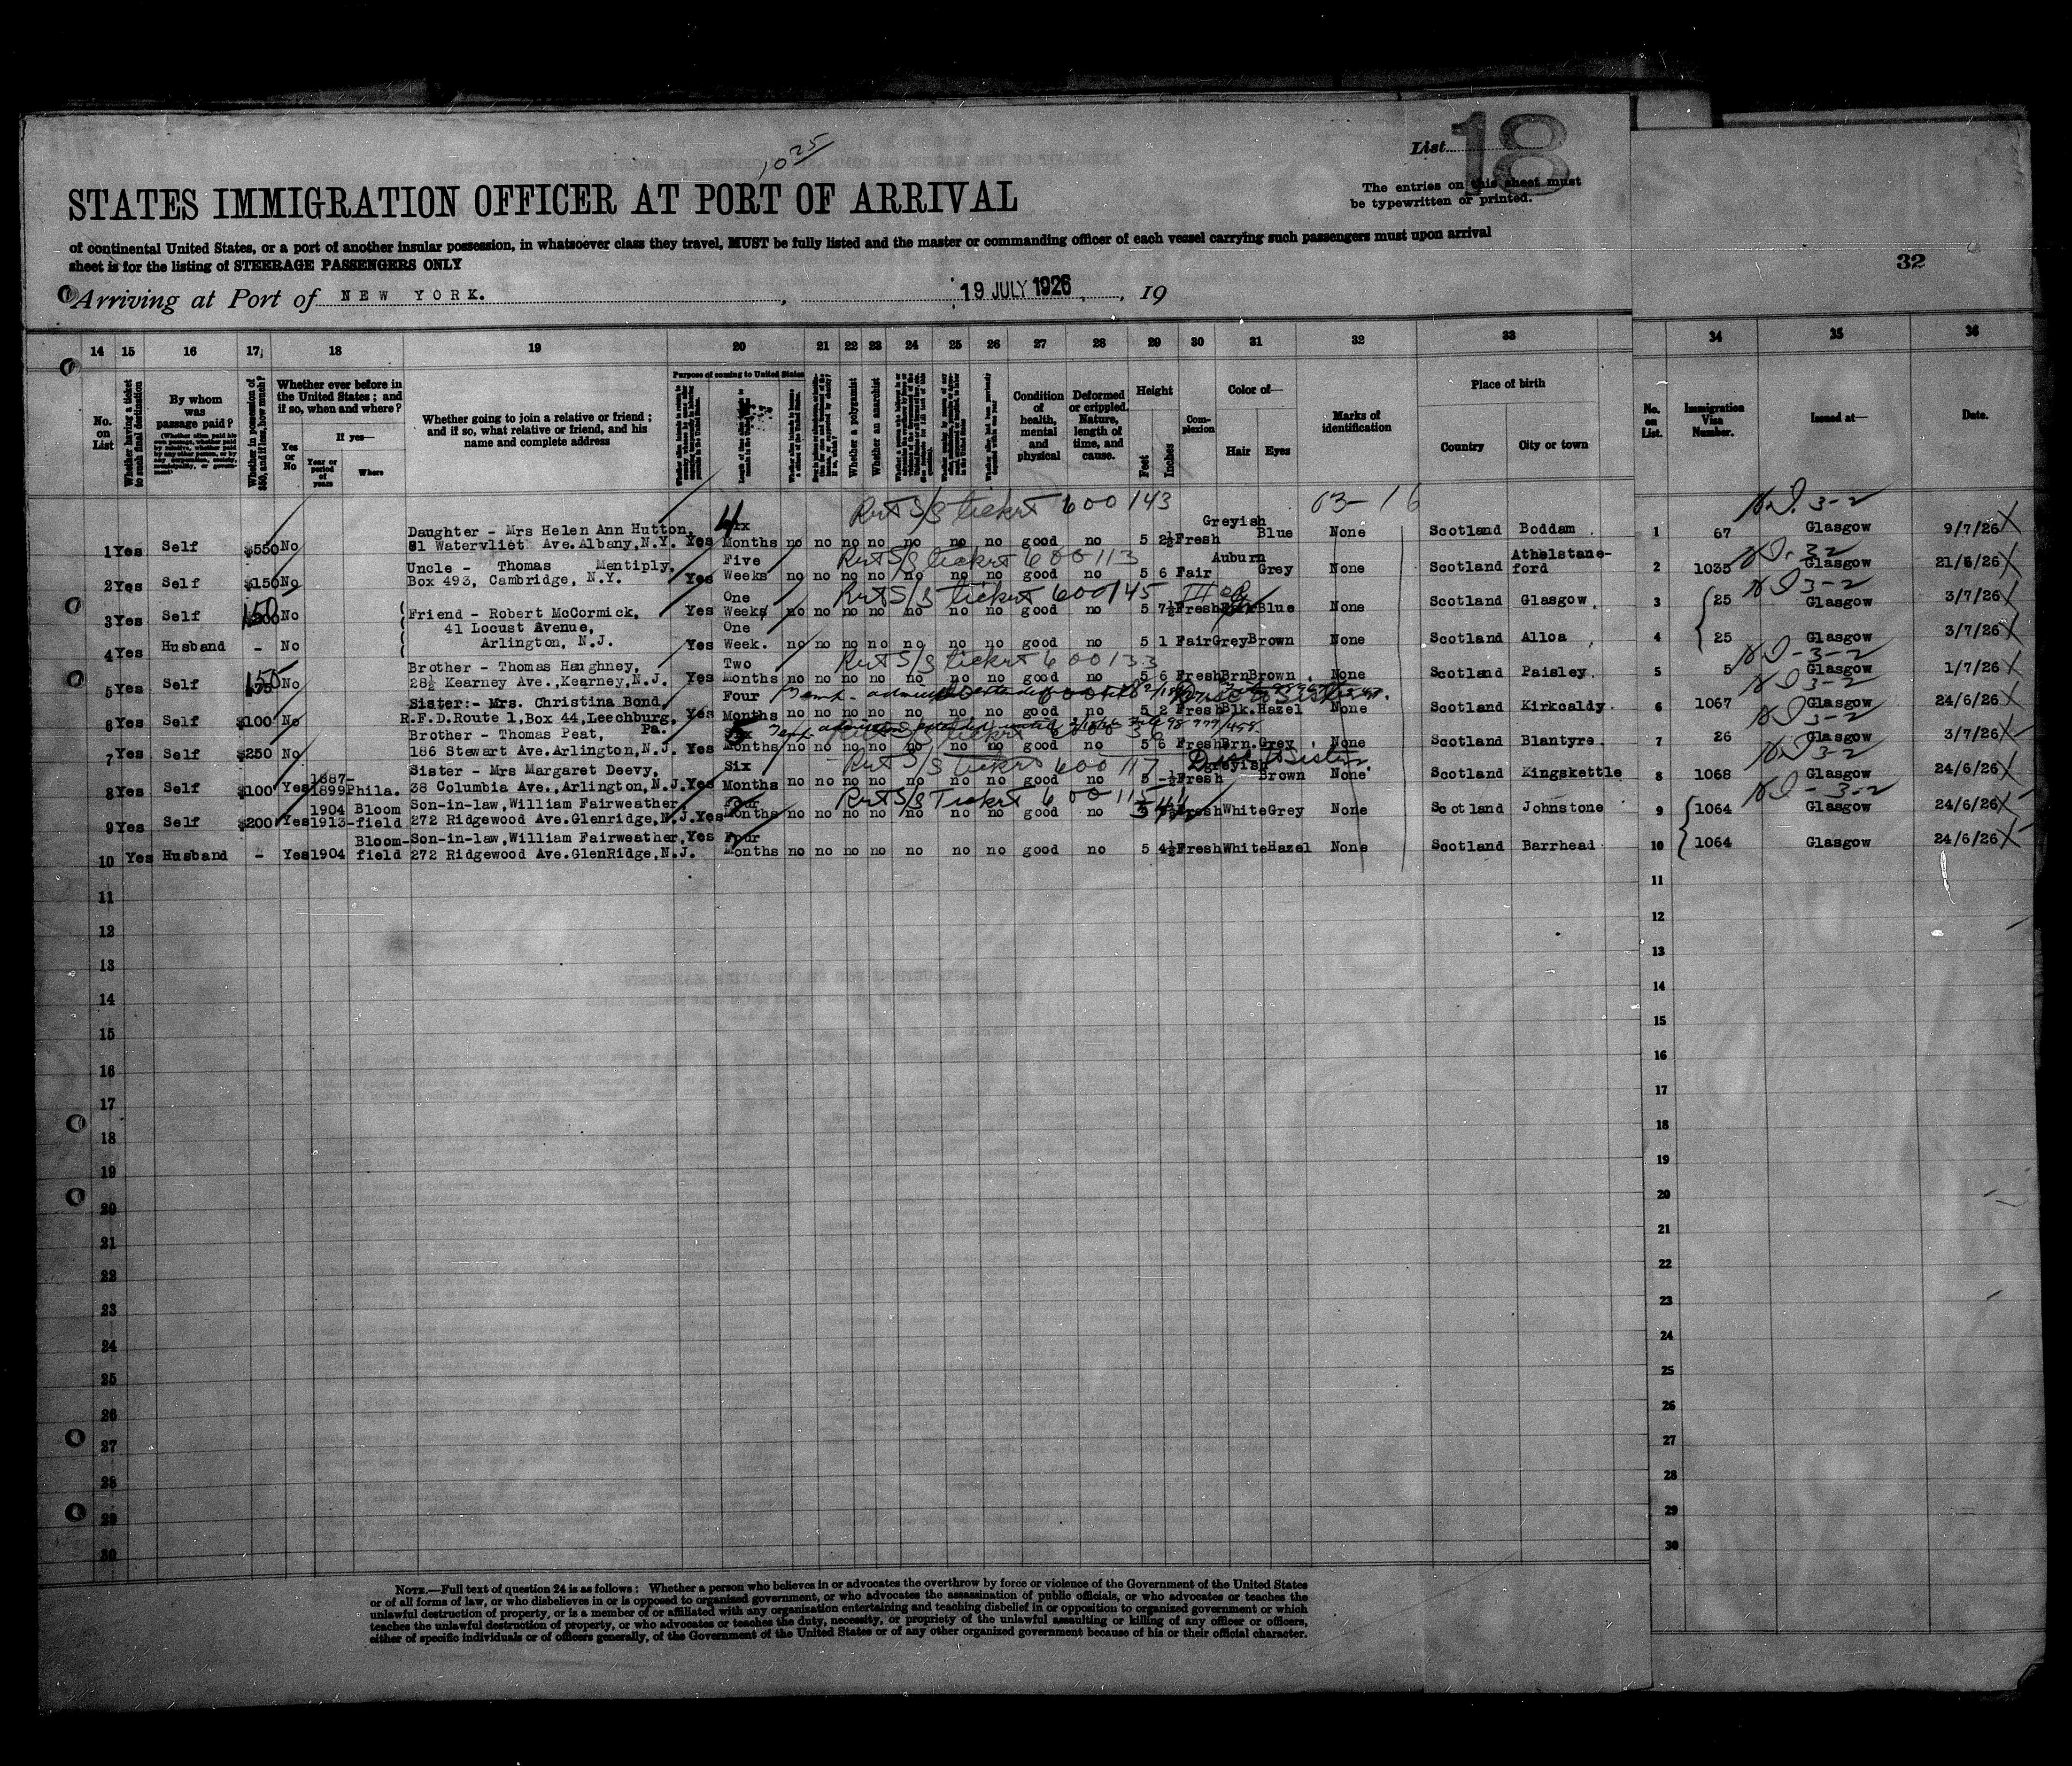 10 25
List 18
The entries on this sheet must
be typewritten or printed.
STATES IMMIGRATION OFFICER AT PORT OF ARRIVAL
of continental United States, or a port of another insular possession, in whatsoever class they travel, MUST be fully listed and the master or commanding officer of each vessel carrying such passengers must upon arrival
sheet is for the listing of STEERAGE PASSENGERS ONLY
32
Arriving at Port of NEW YORK. , 19 JULY 1926 , 19
14 15 16 17 18 19 20 21 22 23 24 25 26 27 28 29 30 31 32 33 34 35 36
No. on List
Whether having a ticket to such final destination
By whom was passage paid?
Whether in possession of $50, and if less, how much?
Whether ever before in the United States; and if so, when and where?
Yes or No
If yes—
Year or period of years
Where
Whether going to join a relative or friend; and if so, what relative or friend, and his name and complete address
Purpose of coming to United States
Whether a polygamist
Whether an anarchist
Condition of health, mental and physical
Deformed or crippled. Nature, length of time, and cause.
Height
Feet
Inches
Complexion
Color of—
Hair
Eyes
Marks of identification
Place of birth
Country
City or town
No. on List.
Immigration Visa Number.
Issued at—
Date.
Ret S/S ticket 600143 03-16
1 Yes Self $550 No Daughter - Mrs Helen Ann Hutton, 81 Watervliet Ave. Albany, N.Y. Yes 4 Months no no no no no no no good no 5 2½ Fresh Greyish Blue None Scotland Boddam 1 67 Glasgow 9/7/26
Ret S/S ticket 600113
2 Yes Self $150 No Uncle - Thomas Mentiply, Box 493, Cambridge, N.Y. Yes Five Weeks no no no no no no no good no 5 6 Fair Auburn Grey None Scotland Athelstane-ford 2 1035 Glasgow 21/6/26
Ret S/S ticket 600145
3 Yes Self 150 No Friend - Robert McCormick, Yes One Week no no no no no no no good no 5 7½ Fresh Blue None Scotland Glasgow 3 25 Glasgow 3/7/26
41 Locust Avenue,
4 Yes Husband - No Arlington, N.J. Yes One Week. no no no no no no no good no 5 1 Fair Grey Brown None Scotland Alloa 4 25 Glasgow 3/7/26
Ret S/S ticket 600133
5 Yes Self 150 No Brother - Thomas Haughney, 28½ Kearney Ave., Kearney, N.J. Yes Two Months no no no no no no no good no 5 6 Fresh Brn Brown None Scotland Paisley 5 5 Glasgow 1/7/26
6 Yes Self $100 No Sister:- Mrs. Christina Bond, R.F.D. Route 1, Box 44, Leechburg, Pa. Yes Four Months no no no no no no no good no 5 2 Fresh Blk. Hazel None Scotland Kirkcaldy 6 1067 Glasgow 24/6/26
7 Yes Self $250 No Brother - Thomas Peat, 186 Stewart Ave. Arlington, N.J. Yes Months no no no no no no no good no 5 6 Fresh Brn. Grey None Scotland Blantyre 7 26 Glasgow 3/7/26
Ret S/S ticket 600117
8 Yes Self $100 Yes 1887-1899 Phila. Sister - Mrs Margaret Deevy, 38 Columbia Ave., Arlington, N.J. Yes Six Months no no no no no no no good no 5 -½ Fresh Greyish Brown None Scotland Kingskettle 8 1068 Glasgow 24/6/26
Ret S/S Ticket 600115
9 Yes Self $200 Yes 1904 1913 Bloom-field Son-in-law, William Fairweather 272 Ridgewood Ave. Glenridge, N.J. Yes Four Months no no no no no no no good no Fresh White Grey None Scotland Johnstone 9 1064 Glasgow 24/6/26
10 Yes Husband - Yes 1904 Bloom-field Son-in-law, William Fairweather, 272 Ridgewood Ave. GlenRidge, N.J. Yes Four Months no no no no no no no good no 5 4½ Fresh White Hazel None Scotland Barrhead 10 1064 Glasgow 24/6/26
11 11
12 12
13 13
14 14
15 15
16 16
17 17
18 18
19 19
20 20
21 21
22 22
23 23
24 24
25 25
26 26
27 27
28 28
29 29
30 30
NOTE.—Full text of question 24 is as follows: Whether a person who believes in or advocates the overthrow by force or violence of the Government of the United States
or of all forms of law, or who disbelieves in or is opposed to organized government, or who advocates the assassination of public officials, or who advocates or teaches the
unlawful destruction of property, or is a member of or affiliated with any organization entertaining and teaching disbelief in or opposition to organized government or which
teaches the unlawful destruction of property, or who advocates or teaches the duty, necessity, or propriety of the unlawful assaulting or killing of any officer or officers,
either of specific individuals or of officers generally, of the Government of the United States or of any other organized government because of his or their official character.